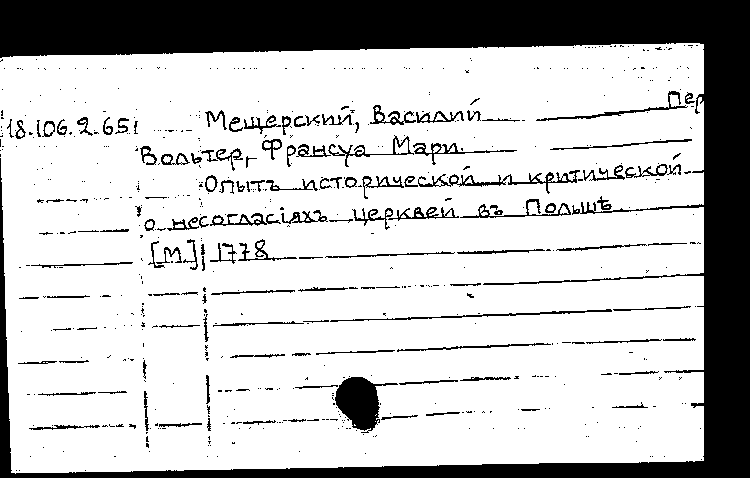 18.106.2.651 Мещерский, Василий Пер
Вольтер, Франсуа Мари.
Опытъ исторической и критической
о несогласіяхъ церквей въ Польшѣ
[М.] 1778